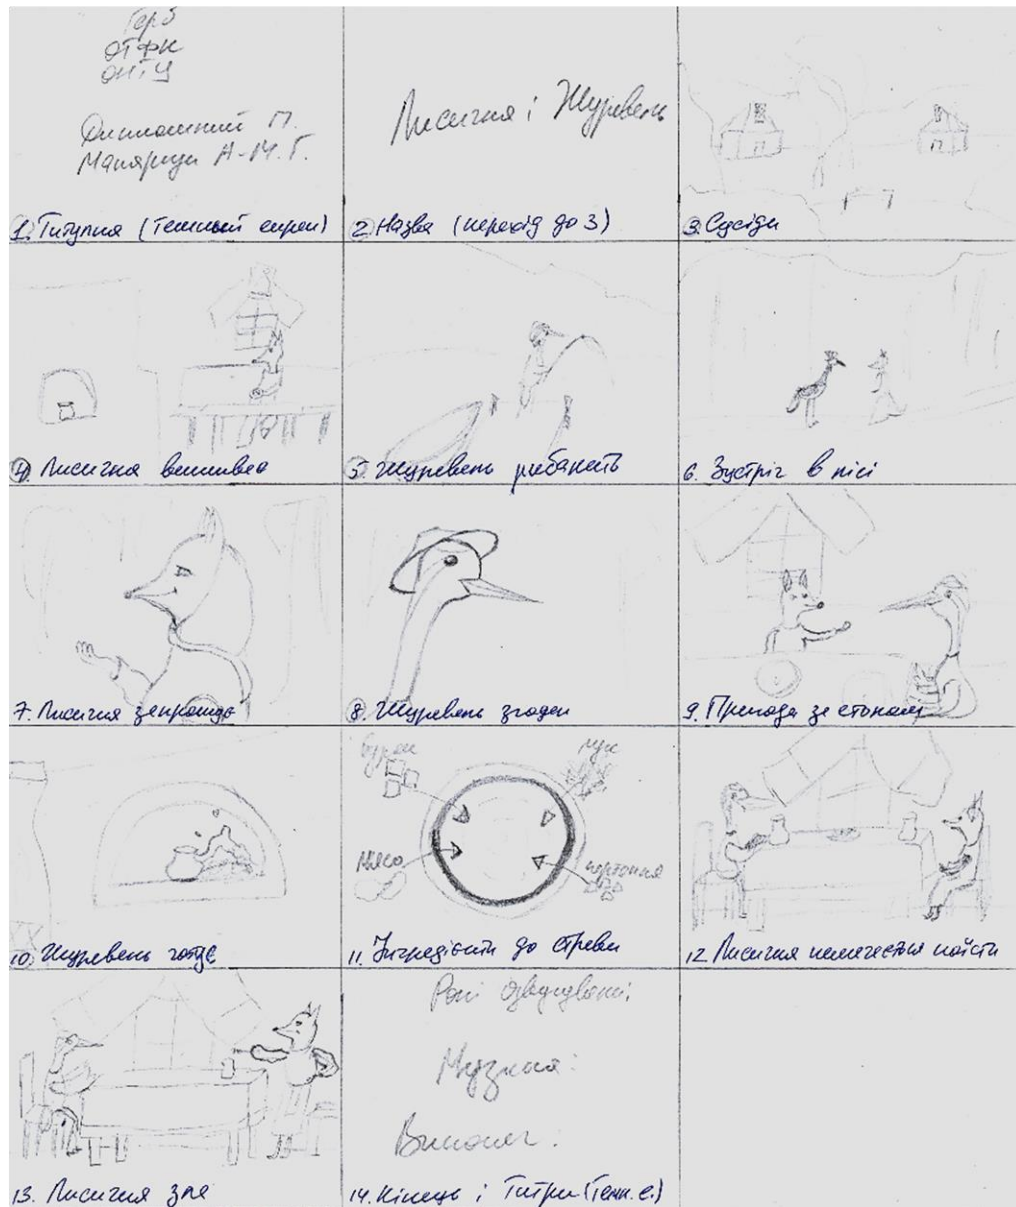 Герб
ОТФК
ОНТУ
Дипломний П.
А-М. Г.
1. Титулка (темний екран)
Лисичка і Журавель
2. Назва (перехід до 3)
3. Сусіди
4. Лисичка вишиває
5. Журавель рибалить
6. Зустріч в лісі
7. Лисичка запрошує
8. Журавель згоден
9. Пригода за столом
10. Журавель готує
буряк
лук
м'ясо
картопля
11. Інгредієнти до страви
12. Лисичка намагається поїсти
13. Лисичка зла
Ролі озвучували:
Музика:
Виконав:
14. Кінець і Титри (темн. е.)